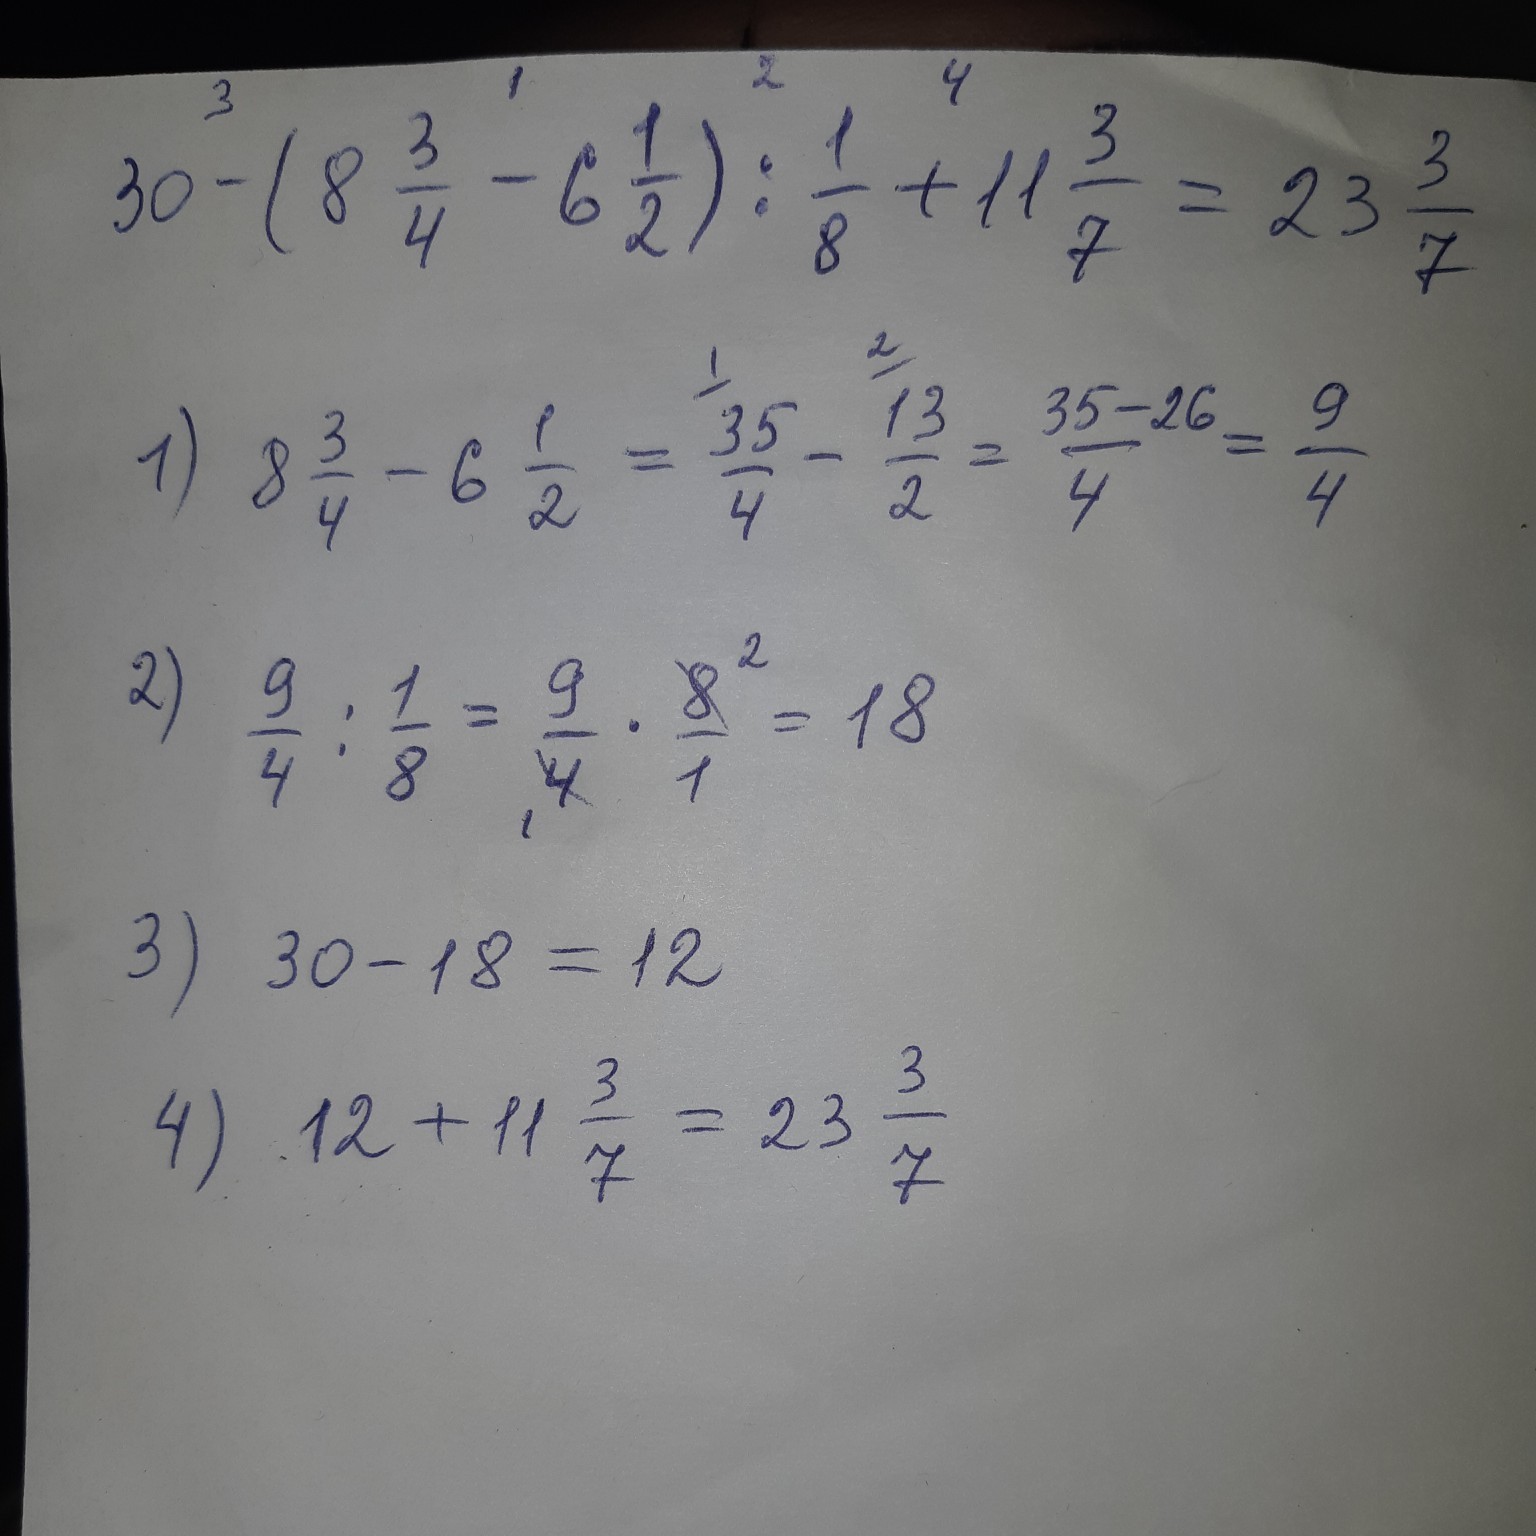 3 1 2 4
30 - (8 3/4 - 6 1/2) : 1/8 + 11 3/7 = 23 3/7
1) 8 3/4 - 6 1/2 = 1/ 35/4 - 2/ 13/2 = 35-26/4 = 9/4
2) 9/4 : 1/8 = 9/4 1 · 8 2/1 = 18
3) 30 - 18 = 12
4) 12 + 11 3/7 = 23 3/7